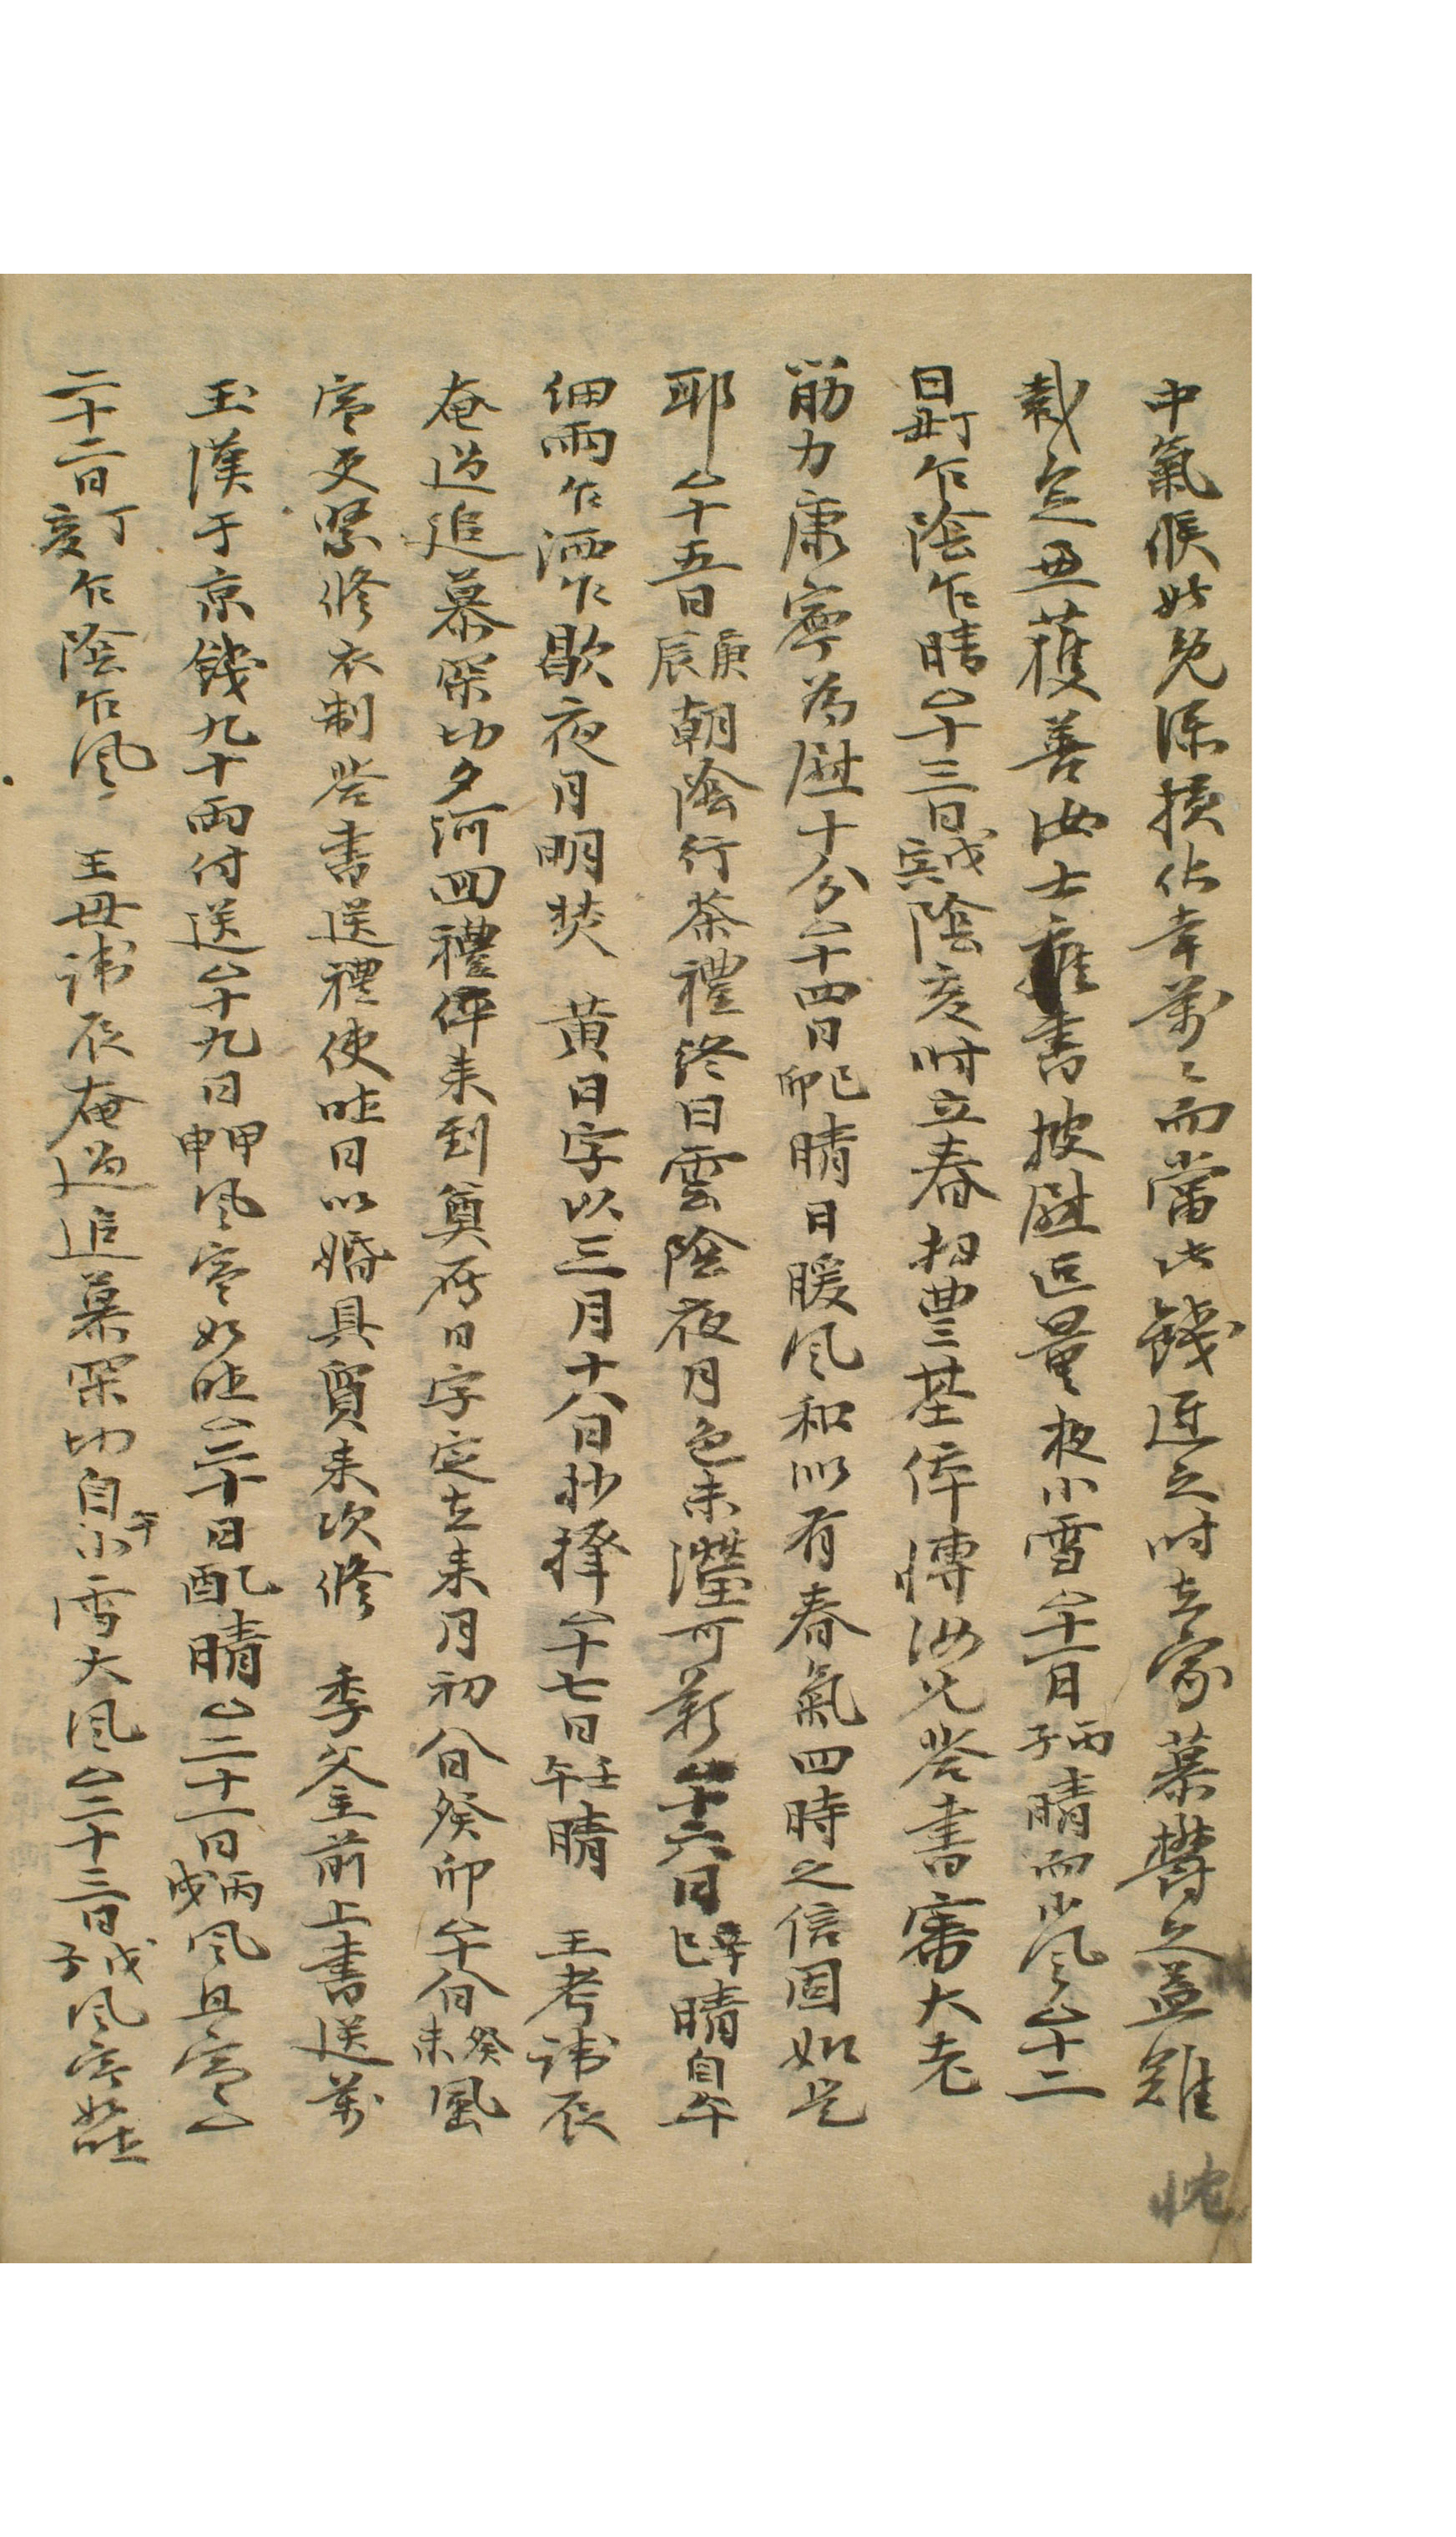 中氣候姑免添損伏幸萬〻而當此餞迓之時主家慕欝之益難忱
裁定再獲善汝士雍書披慰叵量夜小雪△十一日丙子晴而小風△十二
日丁丑乍陰乍晴△十三日戊寅陰亥時立春扫豊基倅傅汝兄答書審大老
筋力康寧爲慰十分△十四日己卯晴日暖風和似有春氣四時之信固如是
耶△十五日庚辰朝陰行茶禮終日雲陰夜月色未瀅可歎△十六日辛巳晴自午
細雨乍洒乍歇夜月明焚 黃日字以三月十八日抄擇△十七日壬午晴 王考諱辰
奄過追慕罙切夕河回禮伻來到奠雁日字定在來月初八日癸卯△十八日癸未風
寒更緊修衣制答書送禮使昨日以婚具貿來次修 季父主前上書送萬
玉漢于京錢九十兩付送△十九日甲申風寒如昨△二十日乙酉晴△二十一日丙戌風且寒△
二十二日丁亥乍陰乍風 王母諱辰奄過追慕罙切自午小雪大風△二十三日戊子風寒如昨